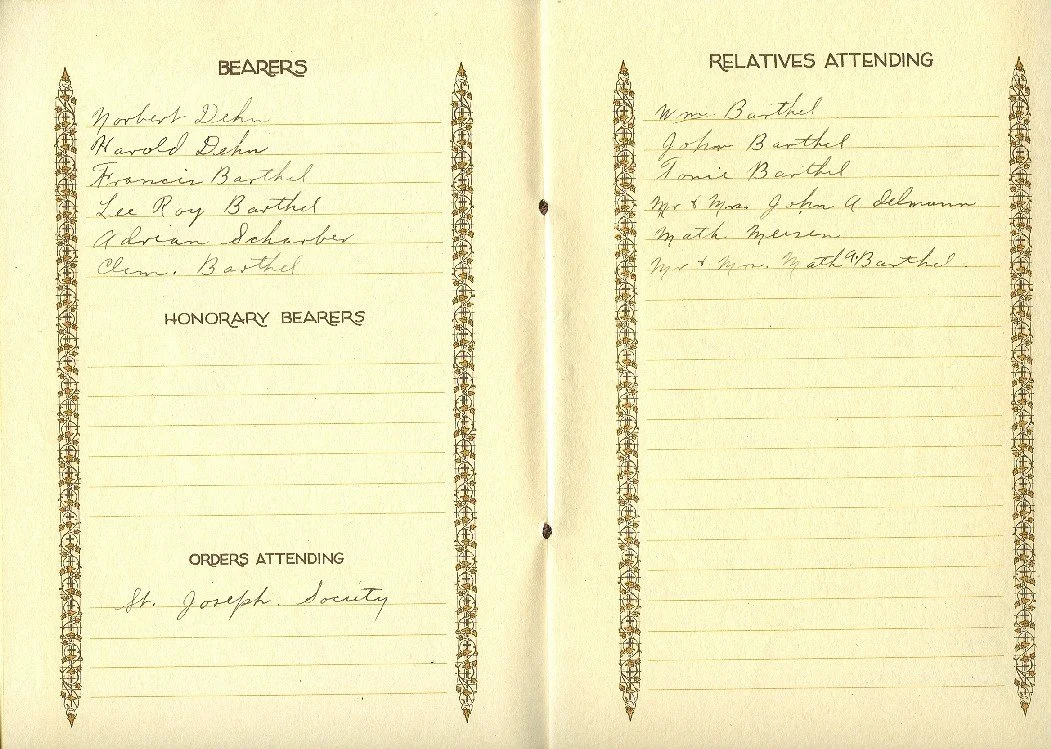 BEARERS
Norbert Dehn
Harold Dehn
Francis Barthel
Lee Roy Barthel
Adrian Scharber
Clem. Barthel
HONORARY BEARERS
ORDERS ATTENDING
St. Joseph. Society
RELATIVES ATTENDING
Wm. Barthel
John Barthel
Tonie Barthel
Mr & Mrs. John A
Math Meisen
Mr & Mrs. Math Barthel.